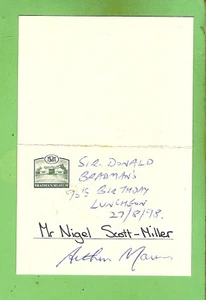 SIR DONALD
BRADMAN'S
90TH BIRTHDAY
LUNCHEON
27/8/98.
Mr Nigel Scott-Miller
Arthur Morris